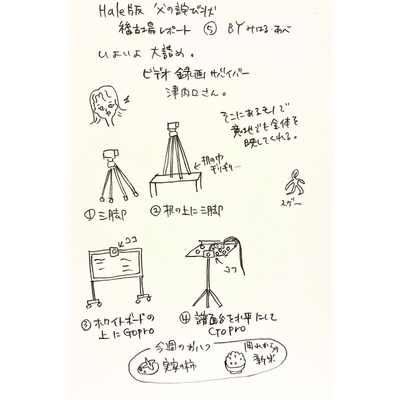 Hale版 父の詫び状
稽古場レポート ⑤ BY みはる・あべ
いよいよ 大詰め。
ビデオ録画サバイバー
津内口さん。
そこにあるモノで
意地でも全体を
映してくれる。
机の巾
ギリギリ…
スゲー
① 三脚
② 机の上に三脚
ココ
ココ
③ ホワイトボードの
上に Gopro
④ 譜面台を水平にして
Gopro
今週のおやつ
実家の柿
新米